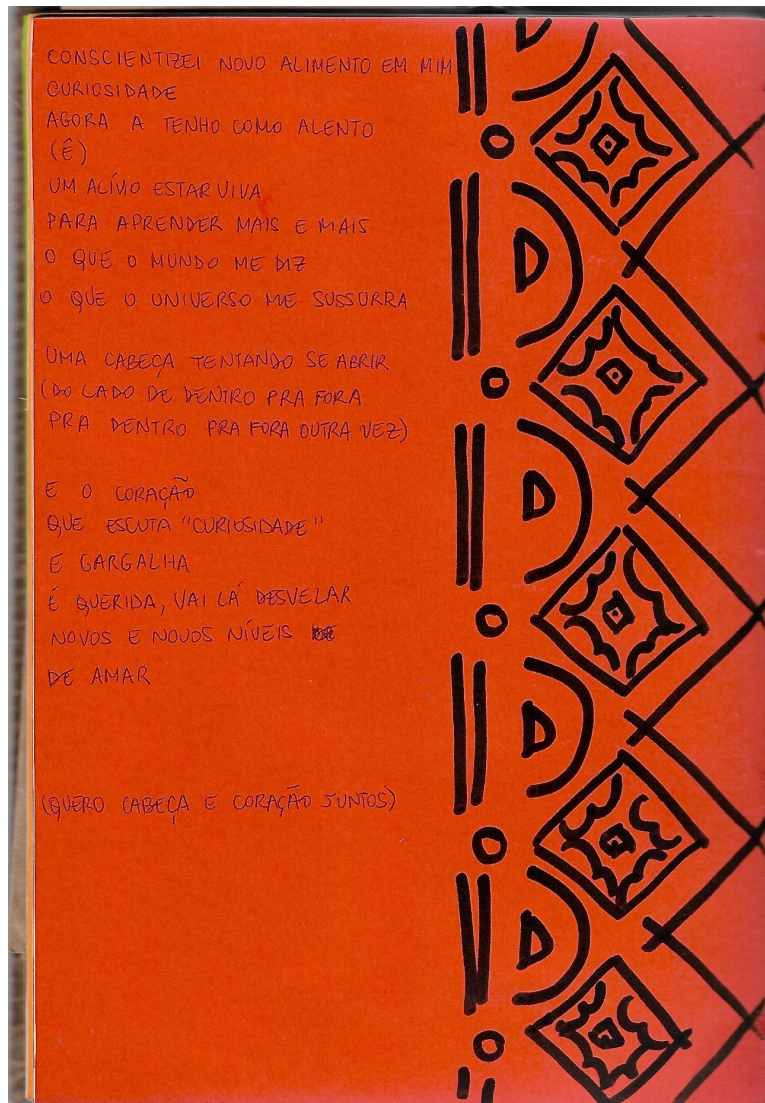 CONSCIENTIZEI NOVO ALIMENTO EM MIM
CURIOSIDADE
AGORA A TENHO COMO ALENTO
(Ê)
UM ALÍVIO ESTAR VIVA
PARA APRENDER MAIS E MAIS
O QUE O MUNDO ME DIZ
O QUE O UNIVERSO ME SUSSURRA
UMA CABEÇA TENTANDO SE ABRIR
(DO LADO DE DENTRO PRA FORA
PRA DENTRO PRA FORA OUTRA VEZ)
E O CORAÇÃO
QUE ESCUTA "CURIOSIDADE"
E GARGALHA
É QUERIDA, VAI LÁ DESVELAR
NOVOS E NOVOS NÍVEIS
DE AMAR
(QUERO CABEÇA E CORAÇÃO JUNTOS)